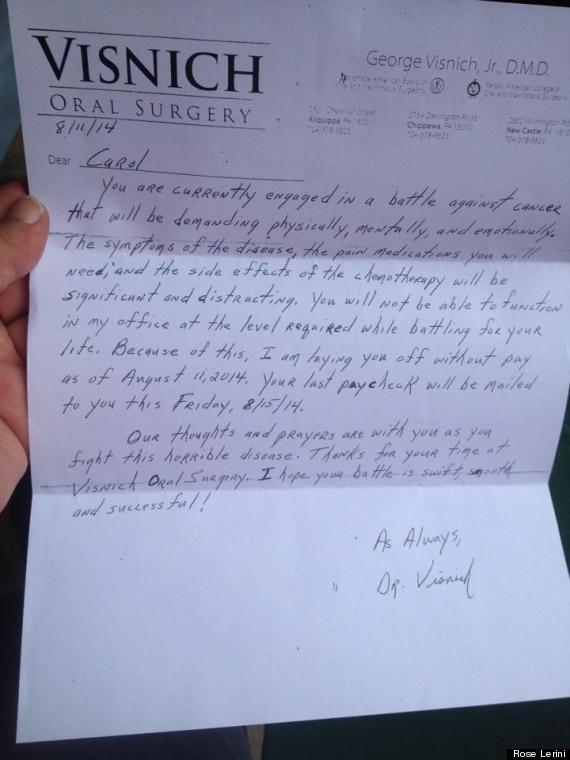 VISNICH
ORAL SURGERY
George Visnich, Jr., D.M.D.
Diplomate, American Board of
Oral and Maxillofacial Surgery
Fellow, American College of
Oral and Maxillofacial Surgeons
Chestnut Street
Aliquippa PA
724-378-9523
2794 Darlington Road
Chippewa PA
724-378-9523
2602 Wilmington Road
New Castle PA
724-378-9523
8/11/14
Dear Carol
You are currently engaged in a battle against cancer
that will be demanding physically, mentally, and emotionally.
The symptoms of the disease, the pain medications you will
need, and the side effects of the chemotherapy will be
significant and distracting. You will not be able to function
in my office at the level required while battling for your
life. Because of this, I am laying you off without pay
as of August 11, 2014. Your last paycheck will be mailed
to you this Friday, 8/15/14.
Our thoughts and prayers are with you as you
fight this horrible disease. Thanks for your time at
Visnich Oral Surgery. I hope your battle is swift, smooth,
and successful!
As Always,
Dr. Visnich
Rose Lerini